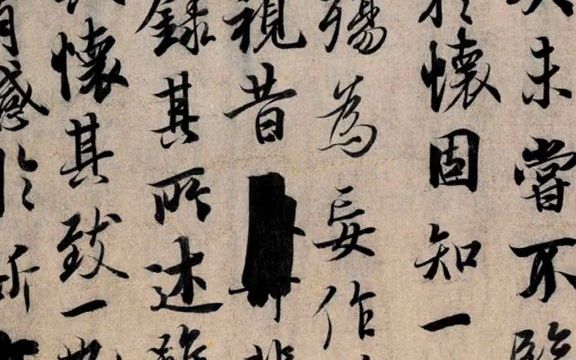 未嘗不臨
於懷固知一
殤為妄作
視昔悲
錄其所述雖
懷其致一也
有感於斯